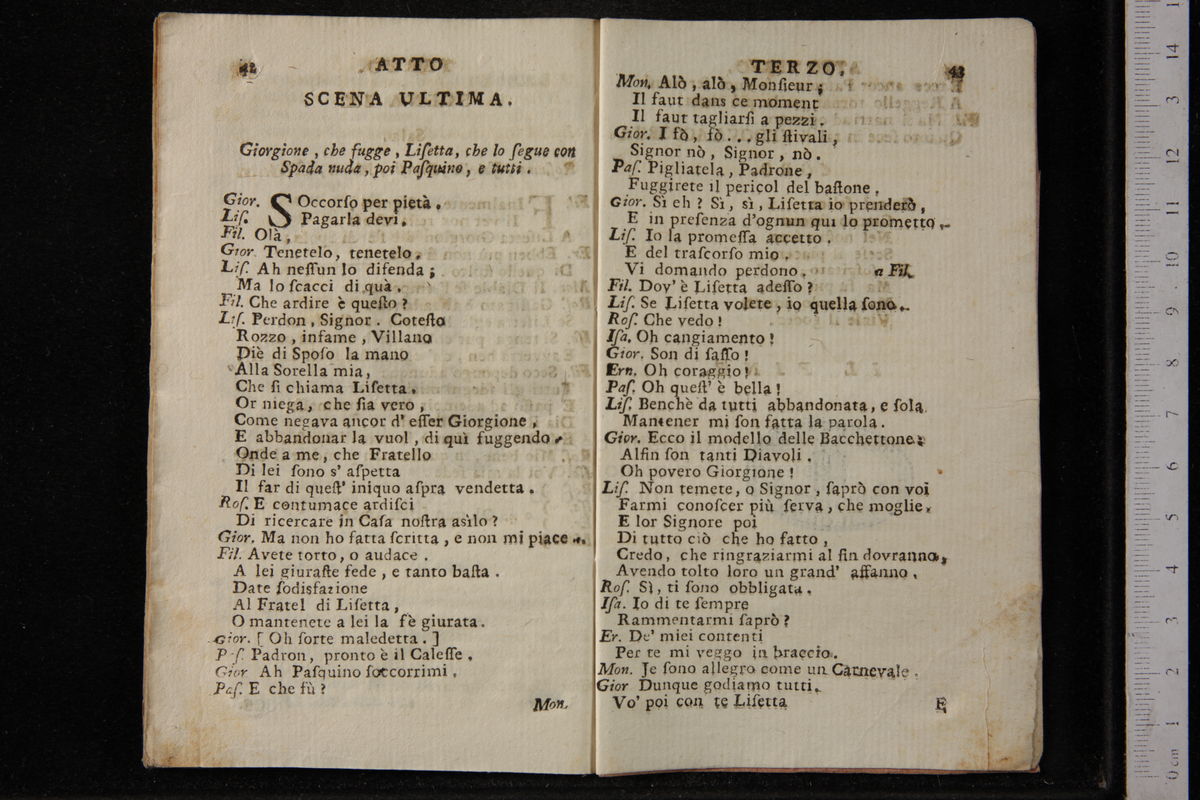 42 ATTO
SCENA ULTIMA.
Giorgione, che fugge, Liſetta, che lo ſegue con
Spada nuda, poi Paſquino, e tutti.
Gior. SOccorſo per pietà.
Liſ. Pagarla devi.
Fil. Olà,
Gior. Tenetelo, tenetelo.
Liſ. Ah neſſun lo difenda;
Ma lo ſcacci di quà.
Fil. Che ardire è queſto?
Liſ. Perdon, Signor. Coteſto
Rozzo, infame, Villano
Diè di Spoſo la mano
Alla Sorella mia,
Che ſi chiama Liſetta.
Or niega, che ſia vero,
Come negava ancor d'eſſer Giorgione,
E abbandonar la vuol, di quì fuggendo
Onde a me, che Fratello
Di lei ſono s'aſpetta
Il far di queſt' iniquo aſpra vendetta.
Roſ. E contumace ardiſci
Di ricercare in Caſa noſtra asìlo?
Gior. Ma non ho fatta ſcritta, e non mi piace...
Fil. Avete torto, o audace.
A lei giuraſte fede, e tanto baſta.
Date ſodisfazione
Al Fratel di Liſetta,
O mantenete a lei la fè giurata.
Gior. [Oh ſorte maledetta.]
Paſ. Padron, pronto è il Caleſſe.
Gior. Ah Paſquino ſoccorrimi.
Paſ. E che fù?
Mon.
TERZO. 43
Mon. Alò, alò, Monſieur;
Il faut dans ce moment
Il faut tagliarſi a pezzi.
Gior. I fò, fò... gli ſtivali,
Signor nò, Signor, nò.
Paſ. Pigliatela, Padrone,
Fuggirete il pericol del baſtone.
Gior. Sì eh? Sì, sì, Liſetta io prenderò,
E in preſenza d'ognun qui lo prometto.
Liſ. Io la promeſſa accetto.
E del traſcorſo mio
Vi domando perdono. a Fil.
Fil. Dov' è Liſetta adeſſo?
Liſ. Se Liſetta volete, io quella ſono.
Roſ. Che vedo!
Iſa. Oh cangiamento!
Gior. Son di ſaſſo!
Ern. Oh coraggio!
Paſ. Oh queſt' è bella!
Liſ. Benchè da tutti abbandonata, e ſola
Mantener mi ſon fatta la parola.
Gior. Ecco il modello delle Bacchettone;
Alfin ſon tanti Diavoli.
Oh povero Giorgione!
Liſ. Non temete, o Signor, ſaprò con voi
Farmi conoſcer più ſerva, che moglie.
E lor Signore poi
Di tutto ciò che ho fatto,
Credo, che ringraziarmi al fin dovranno,
Avendo tolto loro un grand' affanno.
Roſ. Sì, ti ſono obbligata.
Iſa. Io di te ſempre
Rammentarmi ſaprò?
Er. De' miei contenti
Per te mi veggo in braccio.
Mon. Je ſono allegro come un Carnevale.
Gior Dunque godiamo tutti.
Vo' poi con te Liſetta
E